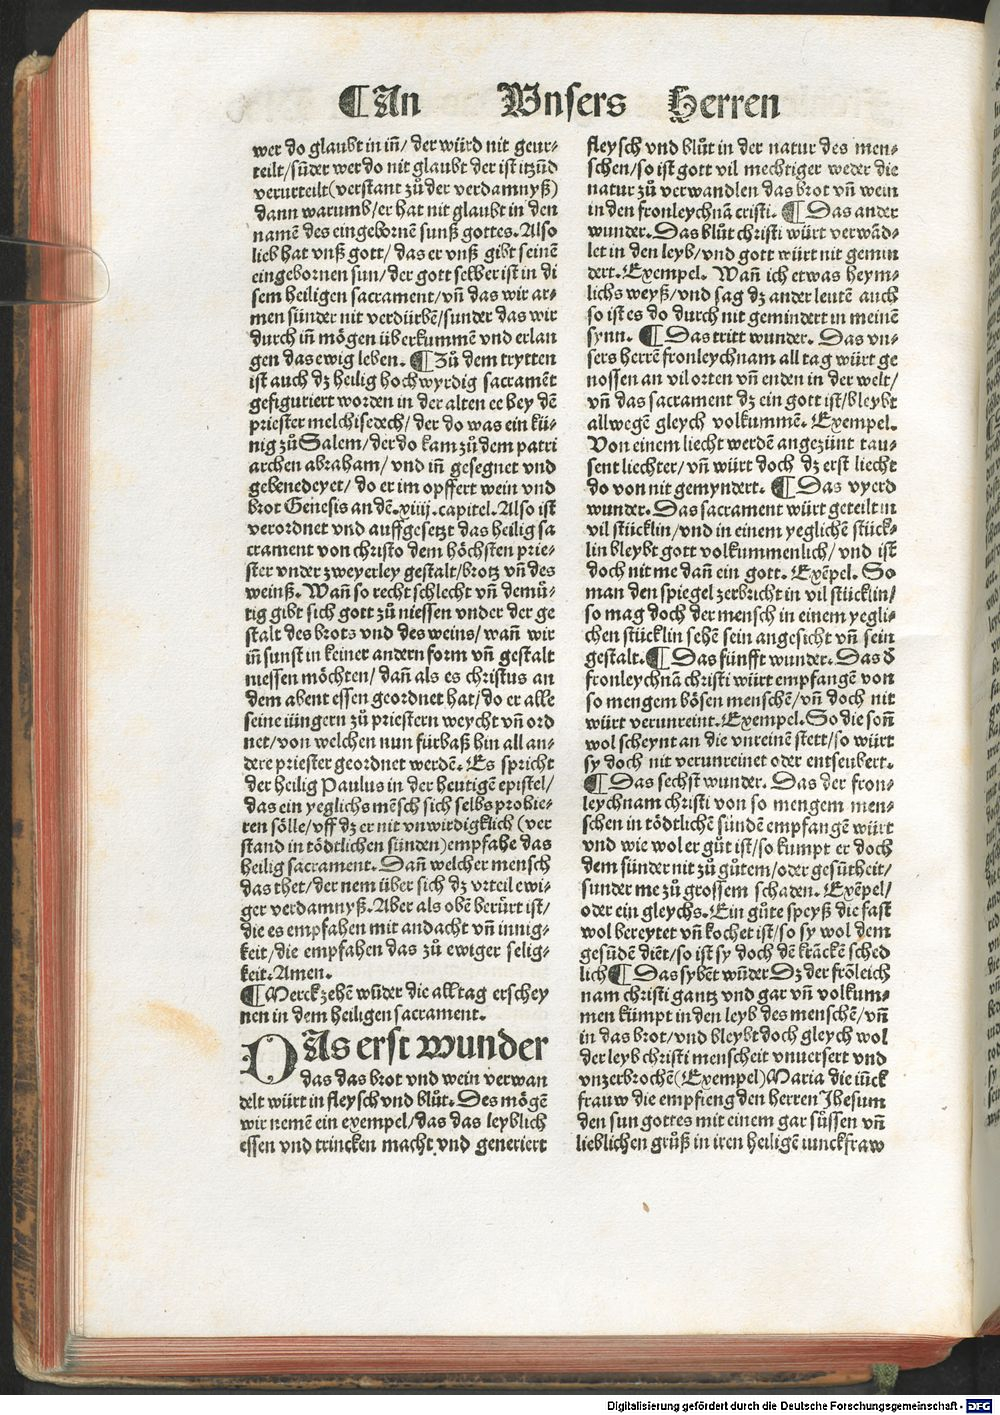 ¶ An Vnsers Herren
wer do glaubt in in̄/ der würd nit geur⸗
teilt/sūder wer do nit glaubt der ist itzūd
verurteilt(verstant zů der verdamnyß)
dann warumb/er hat nit glaubt in den
namē des eingebornē sunß gottes. Also
lieb hat vnß gott/das er vnß gibt seinē
eingebornen sun/der gott selber ist in di
sem heiligen sacrament/vn̄ das wir ar⸗
men sünder nit verdürbē/sunder das wir
durch in̄ mögen überkummen vnd erlan
gen das ewig leben. ¶ Zů dem trytten
ist auch dz heilig hochwyrdig sacramēt
gefiguriert worden in der alten ee bey dē
priester melchisedech/der do was ein kü⸗
nig zů Salem/der do kam zů dem patri
archen abraham/vnd in̄ gesegnet vnd
gebenedeyet/do er im opffert wein vnd
brot Genesis an dē.xiiij.capitel. Also ist
verordnet vnd auffgesetzt das heilig sa
crament von christo dem höchsten prie⸗
ster vnder zweyerley gestalt/brotz vn̄ des
weinß. Wan̄ so recht schlecht vn̄ demü⸗
tig gibt sich gott zů niessen vnder der ge
stalt des brots vnd des weins/wan̄ wir
in̄ sunst in keiner andern form vn̄ gestalt
niessen möchten/dan̄ als es christus an
dem abent essen geordnet hat/do er alle
seine iüngern zů priestern weycht vn̄ ord
net/von welchen nun fürbaß hin all an⸗
dere priester geordnet werdē. Es spricht
der heilig Paulus in der heutigē epistel/
das ein yeglichs mēsch sich selbs probie⸗
ren sölle/vff dz er nit vnwirdigklich (ver
stand in tödtlichen sünden)empfahe das
heilig sacrament. Dan̄ welcher mensch
das thet/der nem über sich dz vrteil ewi⸗
ger verdamnyß. Aber als obē berürt ist/
die es empfahen mit andacht vn̄ innig⸗
keit/die empfahen das zů ewiger selig⸗
keit. Amen.
¶ Merck zehē wūder die all tag erschey
nen in dem heiligen sacrament.
DAs erst wunder
das das brot vnd wein verwan
delt würt in fleysch vnd blůt. Des mögē
wir nemē ein exempel/das das leyblich
essen vnd trincken macht vnd generiert
fleysch vnd blůt in der natur des men⸗
schen/so ist gott vil mechtiger weder die
natur zů verwandlen das brot vn̄ wein
in den fronleychnā cristi. ¶ Das ander
wunder. Das blůt christi würt verwād⸗
let in den leyb/vnd gott würt nit gemin
dert. Exempel. Wan̄ ich etwas heym⸗
lichs weyß/vnd sag dz ander leutē auch
so ist es do durch nit gemindert in meinē
synn. ¶ Das tritt wunder. Das vn⸗
sers herrē fronleychnam all tag würt ge
nossen an vil orten vn̄ enden in der welt/
vn̄ das sacrament dz ein gott ist/bleybt
allwegē gleych volkummē. Exempel.
Von einem liecht werdē angezünt tau⸗
sent liechter/vn̄ würt doch dz erst liecht
do von nit gemyndert. ¶ Das vyerd
wunder. Das sacrament würt geteilt in
vil stücklin/vnd in einem yeglichē stück⸗
lin bleybt gott volkummenlich/vnd ist
doch nit me dan̄ ein gott. Exēpel. So
man den spiegel zerbricht in vil stücklin/
so mag doch der mensch in einem yegli⸗
chen stücklin sehē sein angesicht vn̄ sein
gestalt. ¶ Das fünfft wunder. Das d̄
fronleychnā christi würt empfangē von
so mengem bösen menschē/vn̄ doch nit
würt verunreint. Exempel. So die son̄
wol scheynt an die vnreinē stett/so würt
sy doch nit verunreinet oder entseubert.
¶ Das sechst wunder. Das der fron⸗
leychnam christi von so mengem men⸗
schen in tödtlichē sündē empfangē würt
vnd wie wol er gůt ist/so kumpt er doch
dem sünder nit zů gůtem/oder gesūtheit/
sunder me zů grossem schaden. Exēpel/
oder ein gleychs. Ein gůte speyß die fast
wol bereytet vn̄ kochet ist/so sy wol dem
gesūdē diēt/so ist sy doch dē krāckē sched
lich ¶ Das sybēt wūder Dz der frōleich
nam christi gantz vnd gar vn̄ volkum⸗
men kümpt in den leyb des menschē/vn̄
in das brot/vnd bleybt doch gleych wol
der leyb christi menscheit vnuersert vnd
vnzerbrochē(Exempel)Maria die iūck
frauw die empfieng den herren Jhesum
den sun gottes mit einem gar süssen vn̄
lieblichen grůß in iren heiligē iunckfraw
Digitalisierung gefördert durch die Deutsche Forschungsgemeinschaft - DFG